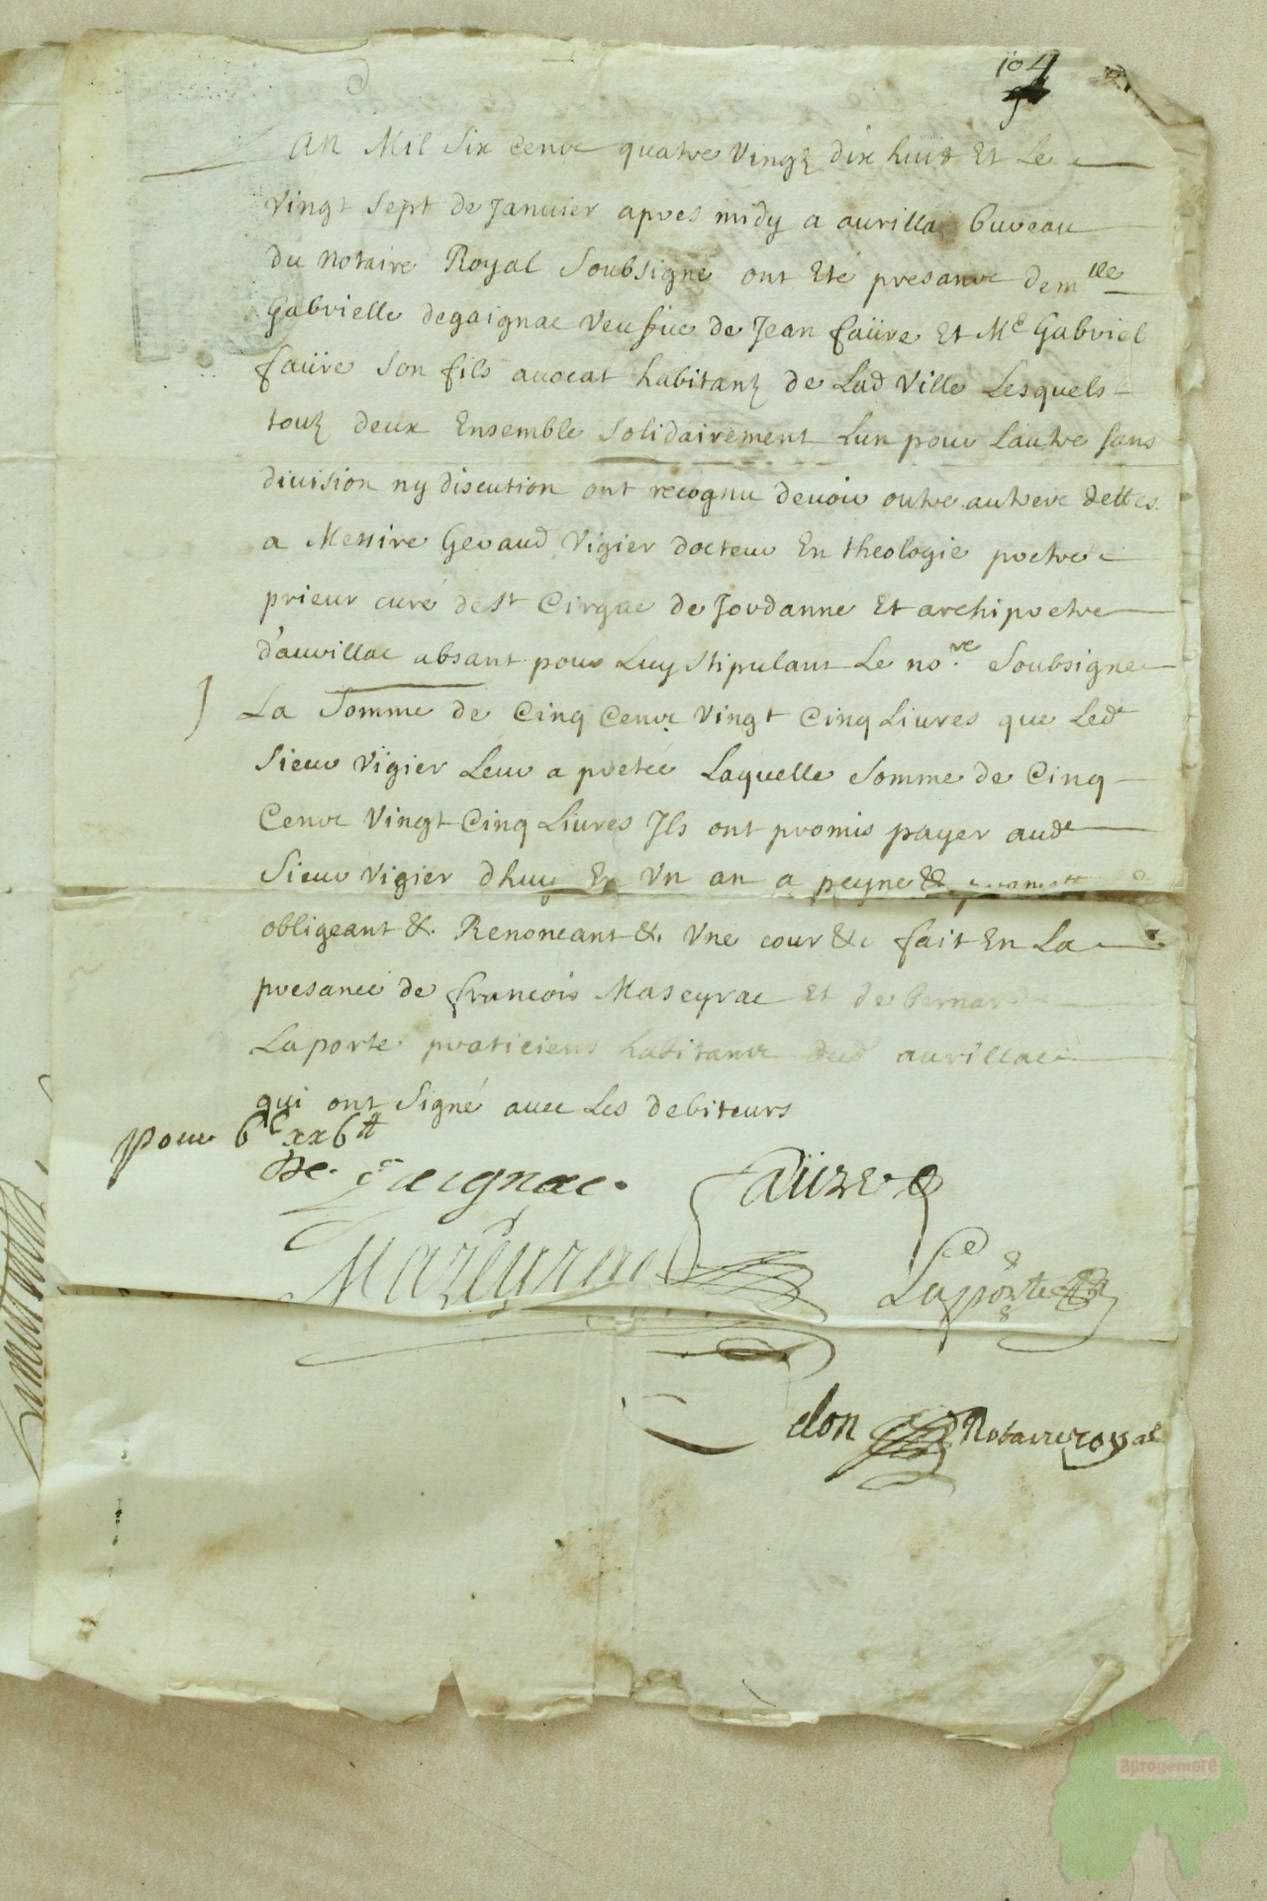 104
An Mil Six Cent quatre Vingt dix huit Et Le
Vingt Sept de Januier apres midy a aurillac bureau
du notaire Royal Soubsigné ont Eté presant demlle
Gabrielle degaignac Veufue de Jean faüre Et Me Gabriel
faüre Son fils auocat habitantz de Lad Ville Lesquels
touz deux Ensemble Solidairement Lun pour Lautre Sans
diuision ny discution ont recognu deuoir outre autere dettes
a Messire Geraud Vigier docteur En theologie pretre
prieur curé de St Cirgac de Jordanne Et archipretre
d'aurillac absant pour Luy Stipulant Le nore Soubsigne
La Somme de Cinq Cent Vingt Cinq Liures que Ledt
Sieur Vigier Leur a pretée Laquelle Somme de Cinq
Cent Vingt Cinq Liures Ils ont promis payer audt
Sieur Vigier dhuy En Vn an a peyne &
obligeant &. Renoncant &. Vne cour &c fait En La
presance de francois Maseyrac Et de bernard
Laporte praticiens habitant dud aurillac
qui ont Signé auec Les debiteurs
Pour
De Gaignac. faüre
Mazeyrac Laporte
Notaire royal
aprogemere